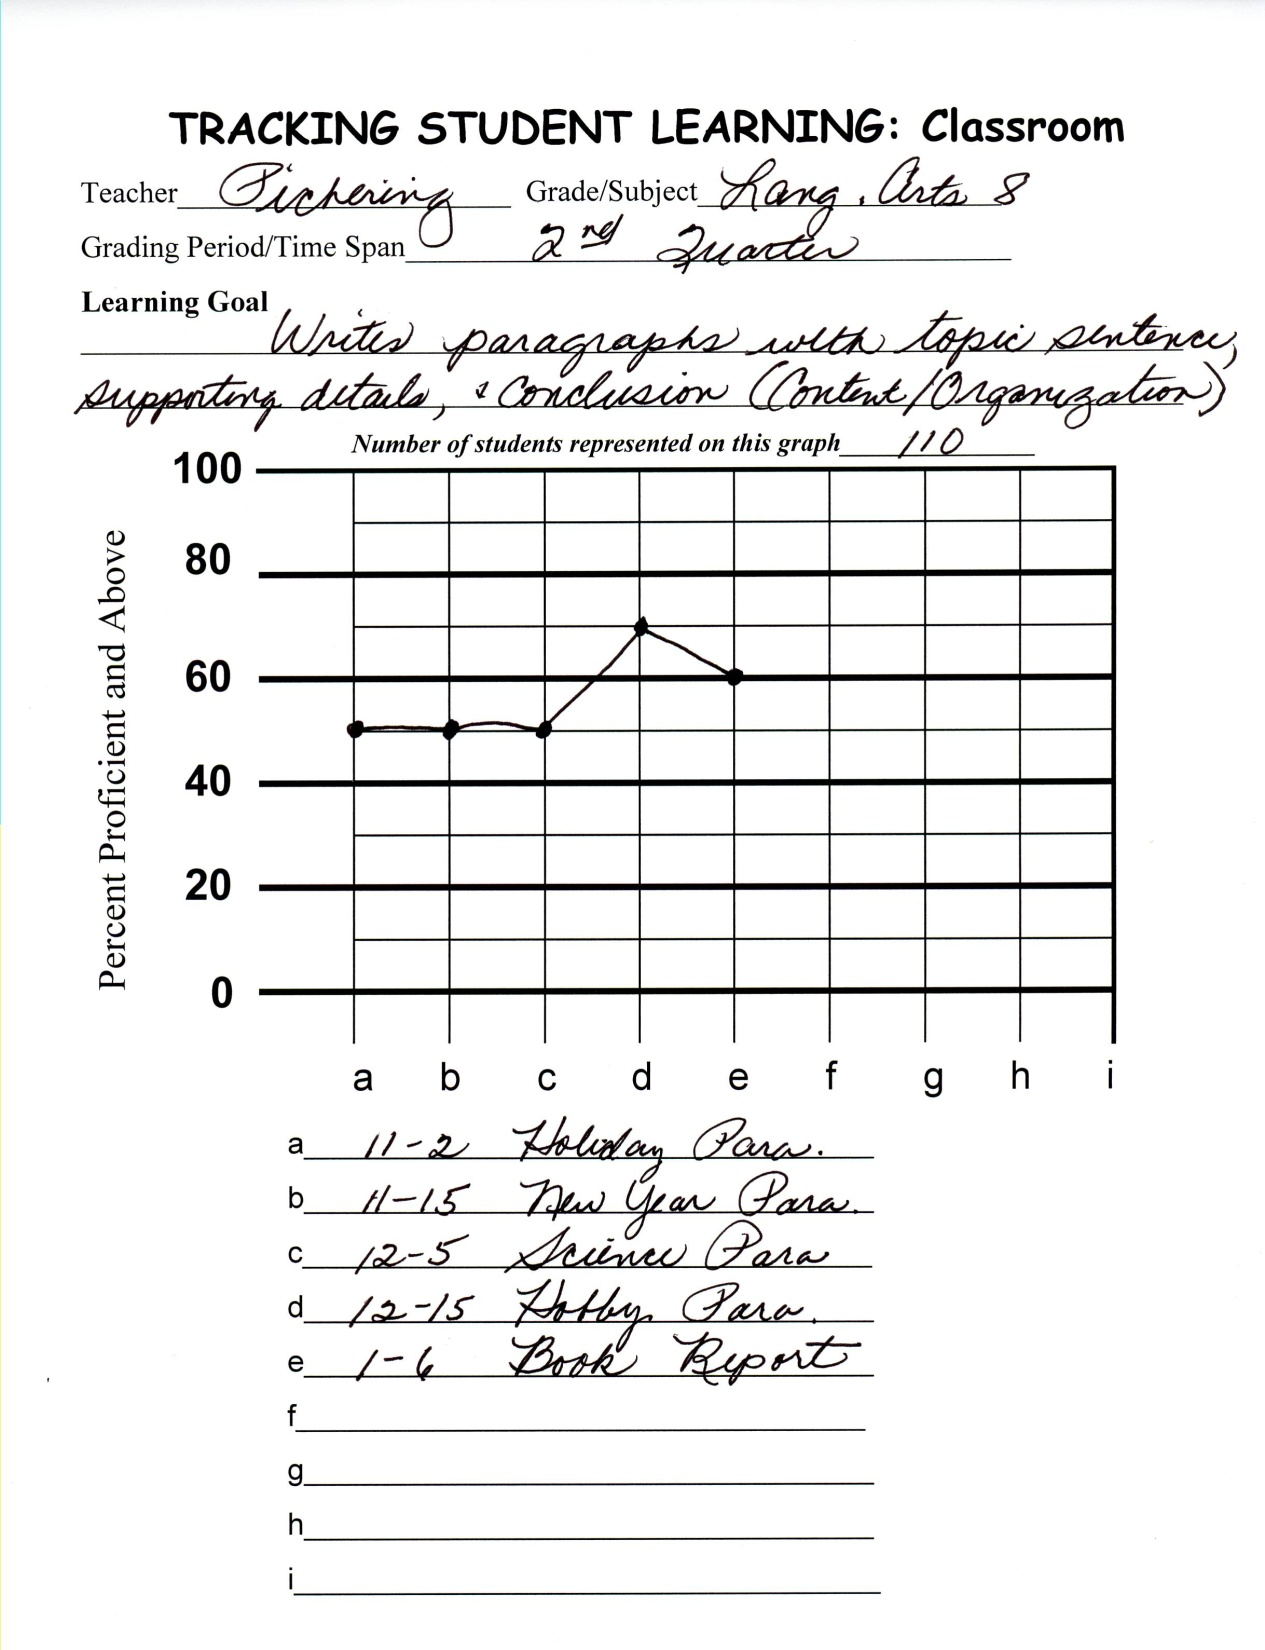 TRACKING STUDENT LEARNING: Classroom
Teacher Pickering Grade/Subject Lang. Arts 8
Grading Period/Time Span 2nd Quarter
Learning Goal
Writes paragraphs with topic sentence,
supporting details, & Conclusion (Content/Organization)
Number of students represented on this graph 110
100
80
60
40
20
0
Percent Proficient and Above
a b c d e f g h i
a 11-2 Holiday Para.
b 11-15 New Year Para.
c 12-5 Science Para
d 12-15 Hobby Para.
e 1-6 Book Report
f
g
h
i